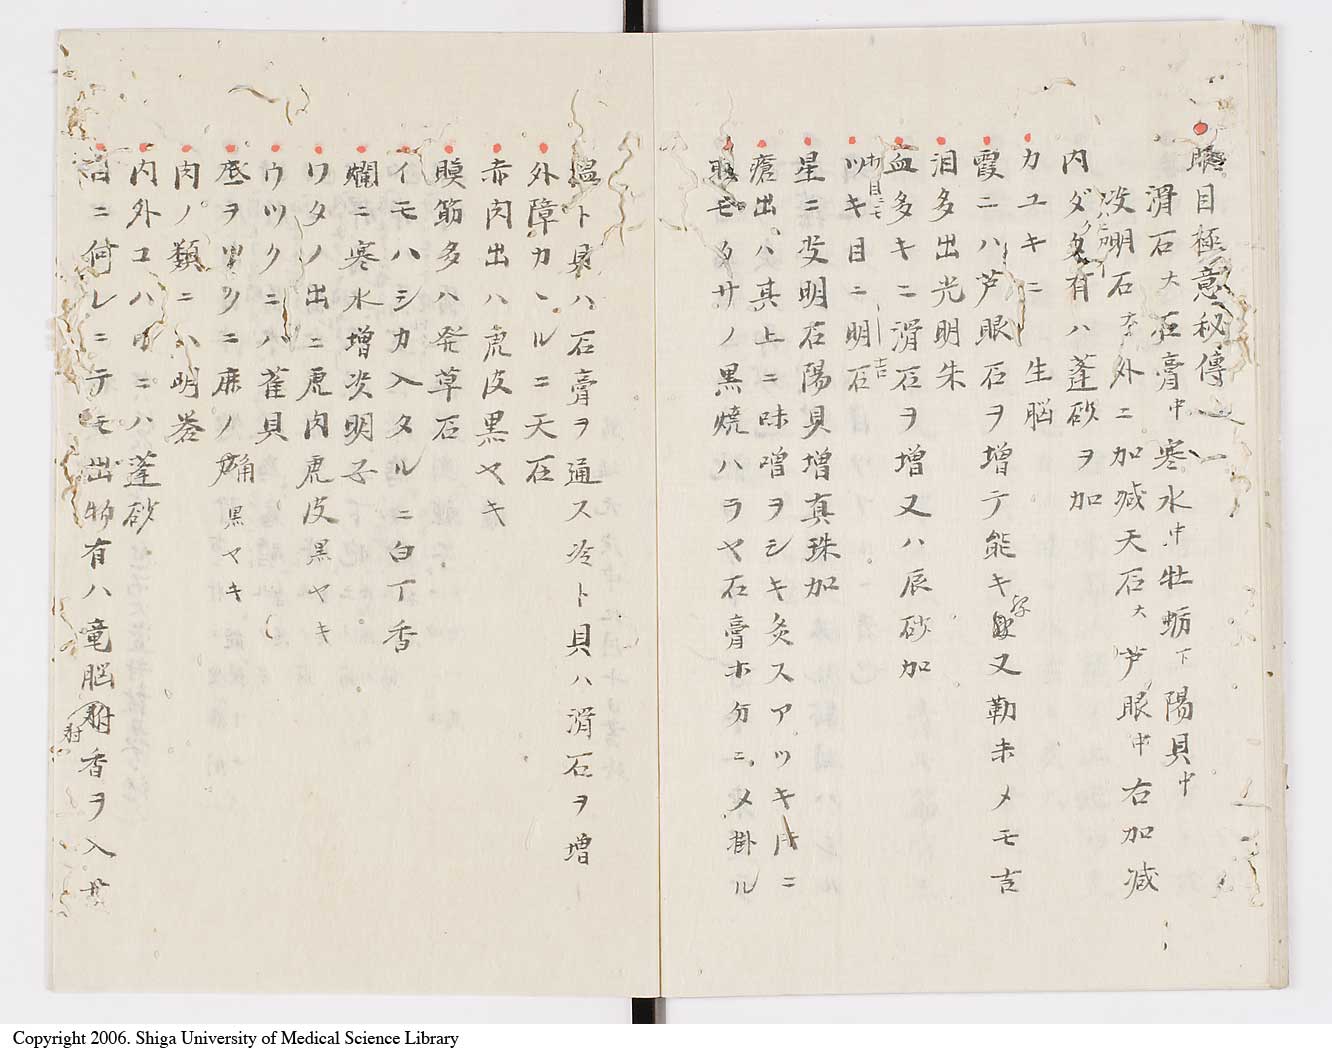 眼目極意秘傳之一
滑石大石膏中寒水中牡蛎下陽貝中
决明石大外ニ加減天石大芦眼中右加減
内ダヾ有ハ蓬砂ヲ加
カユキニ生脳
霞ニハ芦眼石ヲ増テ能キ又勒朱メモ吉
泪多出光明朱
血多キニ滑石ヲ増又ハ辰砂加
ツキ目ニ明石吉
星ニ决明石陽貝増真珠加
瘡出ハ其上ニ味噌ヲシキ灸スアツキ片ニ
眼モクサノ黒焼ハラヤ石膏ホ分ニメ掛ル
温ト貝ハ石膏ヲ通ス冷ト貝ハ滑石ヲ増
外障カヽルニ天石
赤肉出ハ虎皮黒ヤキ
膜筋多ハ発草石
イモハシカ入タルニ白丁香
爛ニ寒水増决明子
ワタノ出ニ虎肉虎皮黒ヤキ
ウツクニハ雀貝
虎ヲツクニ鹿ノ角黒ヤキ
肉ノ類ニハ明礬
内外コハ目ニハ蓬砂
右ニ何レニテモ出物有ハ竜脳麝香ヲ入
Copyright 2006. Shiga University of Medical Science Library